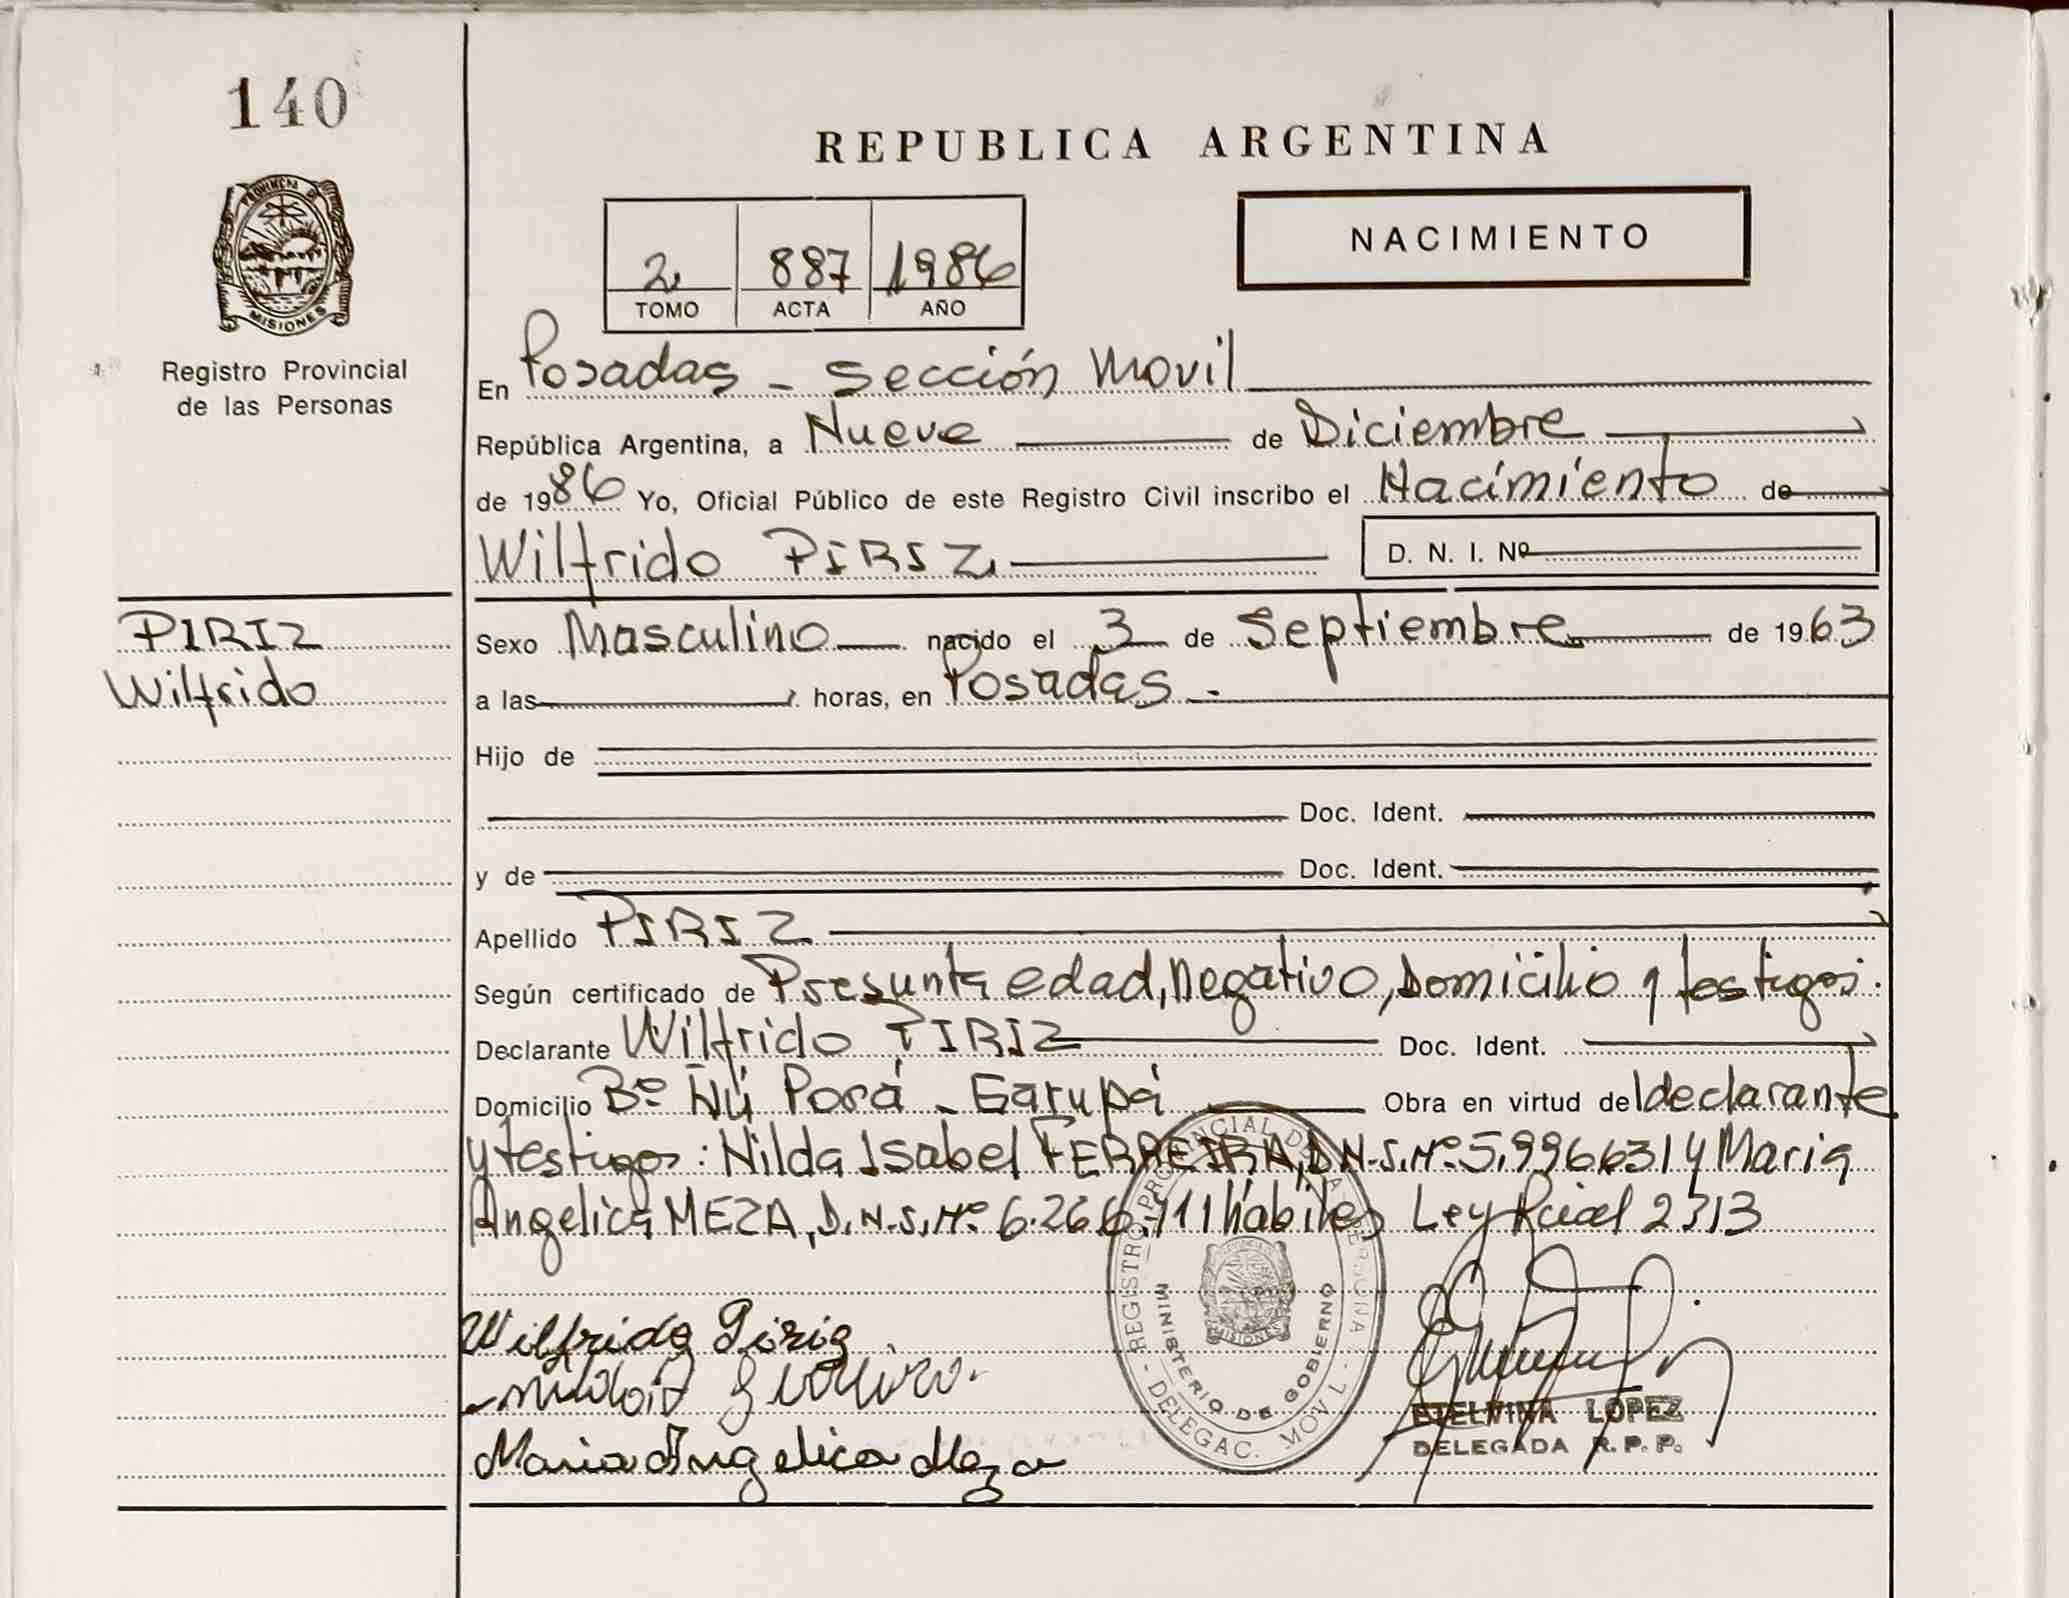 140
REPUBLICA ARGENTINA
PROVINCIA DE
MISIONES
NACIMIENTO
2 887 1986
TOMO ACTA AÑO
Registro Provincial
de las Personas
En Posadas - Sección Movil
República Argentina, a Nueve de Diciembre
de 1986 Yo, Oficial Público de este Registro Civil inscribo el Nacimiento de
Wilfrido PIRIZ D. N. I. Nº
PIRIZ
Wilfrido
Sexo Masculino nacido el 3 de Septiembre de 1963
a las horas, en Posadas.-
Hijo de
Doc. Ident.
y de Doc. Ident.
Apellido PIRIZ
Según certificado de Presunta edad, negativo, Domicilio y testigos.
Declarante Wilfrido PIRIZ Doc. Ident.
Domicilio Bº Ñú Porá - Garupá Obra en virtud del declarante
y testigos: Nilda Isabel FERREIRA, D.N.I. Nº 5.996.631 y Maria
Angelica MEZA, D.N.I. Nº 6.266. hábiles Ley Pcial 2313
REGISTRO PROVINCIAL DE PERSONA
MINISTERIO DE GOBIERNO
MISIONES
DELEGAC. MOVL
Wilfrido Piriz
Maria Angelica Meza
ETELVINA LOPEZ
DELEGADA R. P. P.